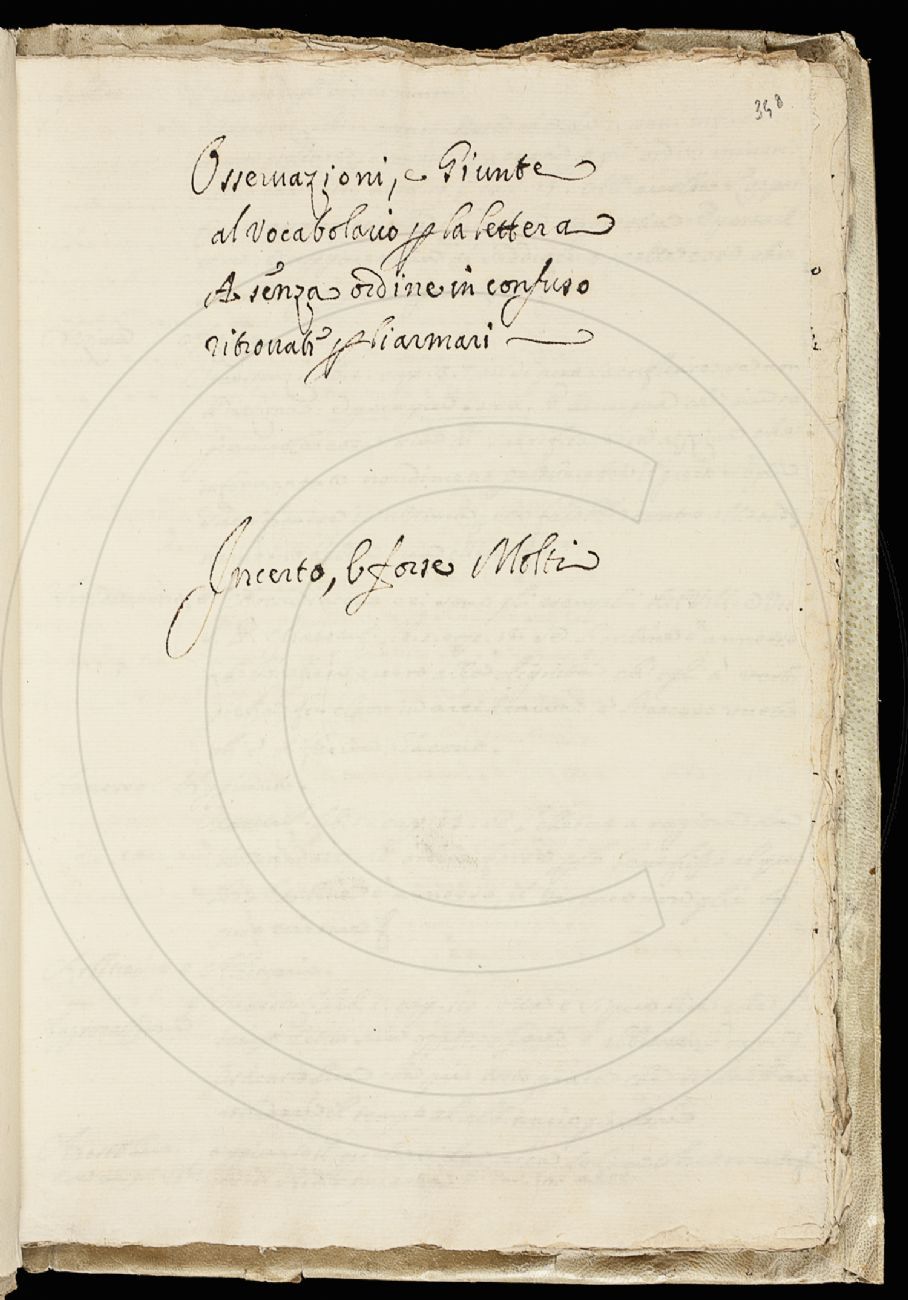 348
Osservazioni, e Giunte
al Vocabolario p la lettera
A senza ordine in confuso
ritrovati p li armari
Incerto, forse Molti